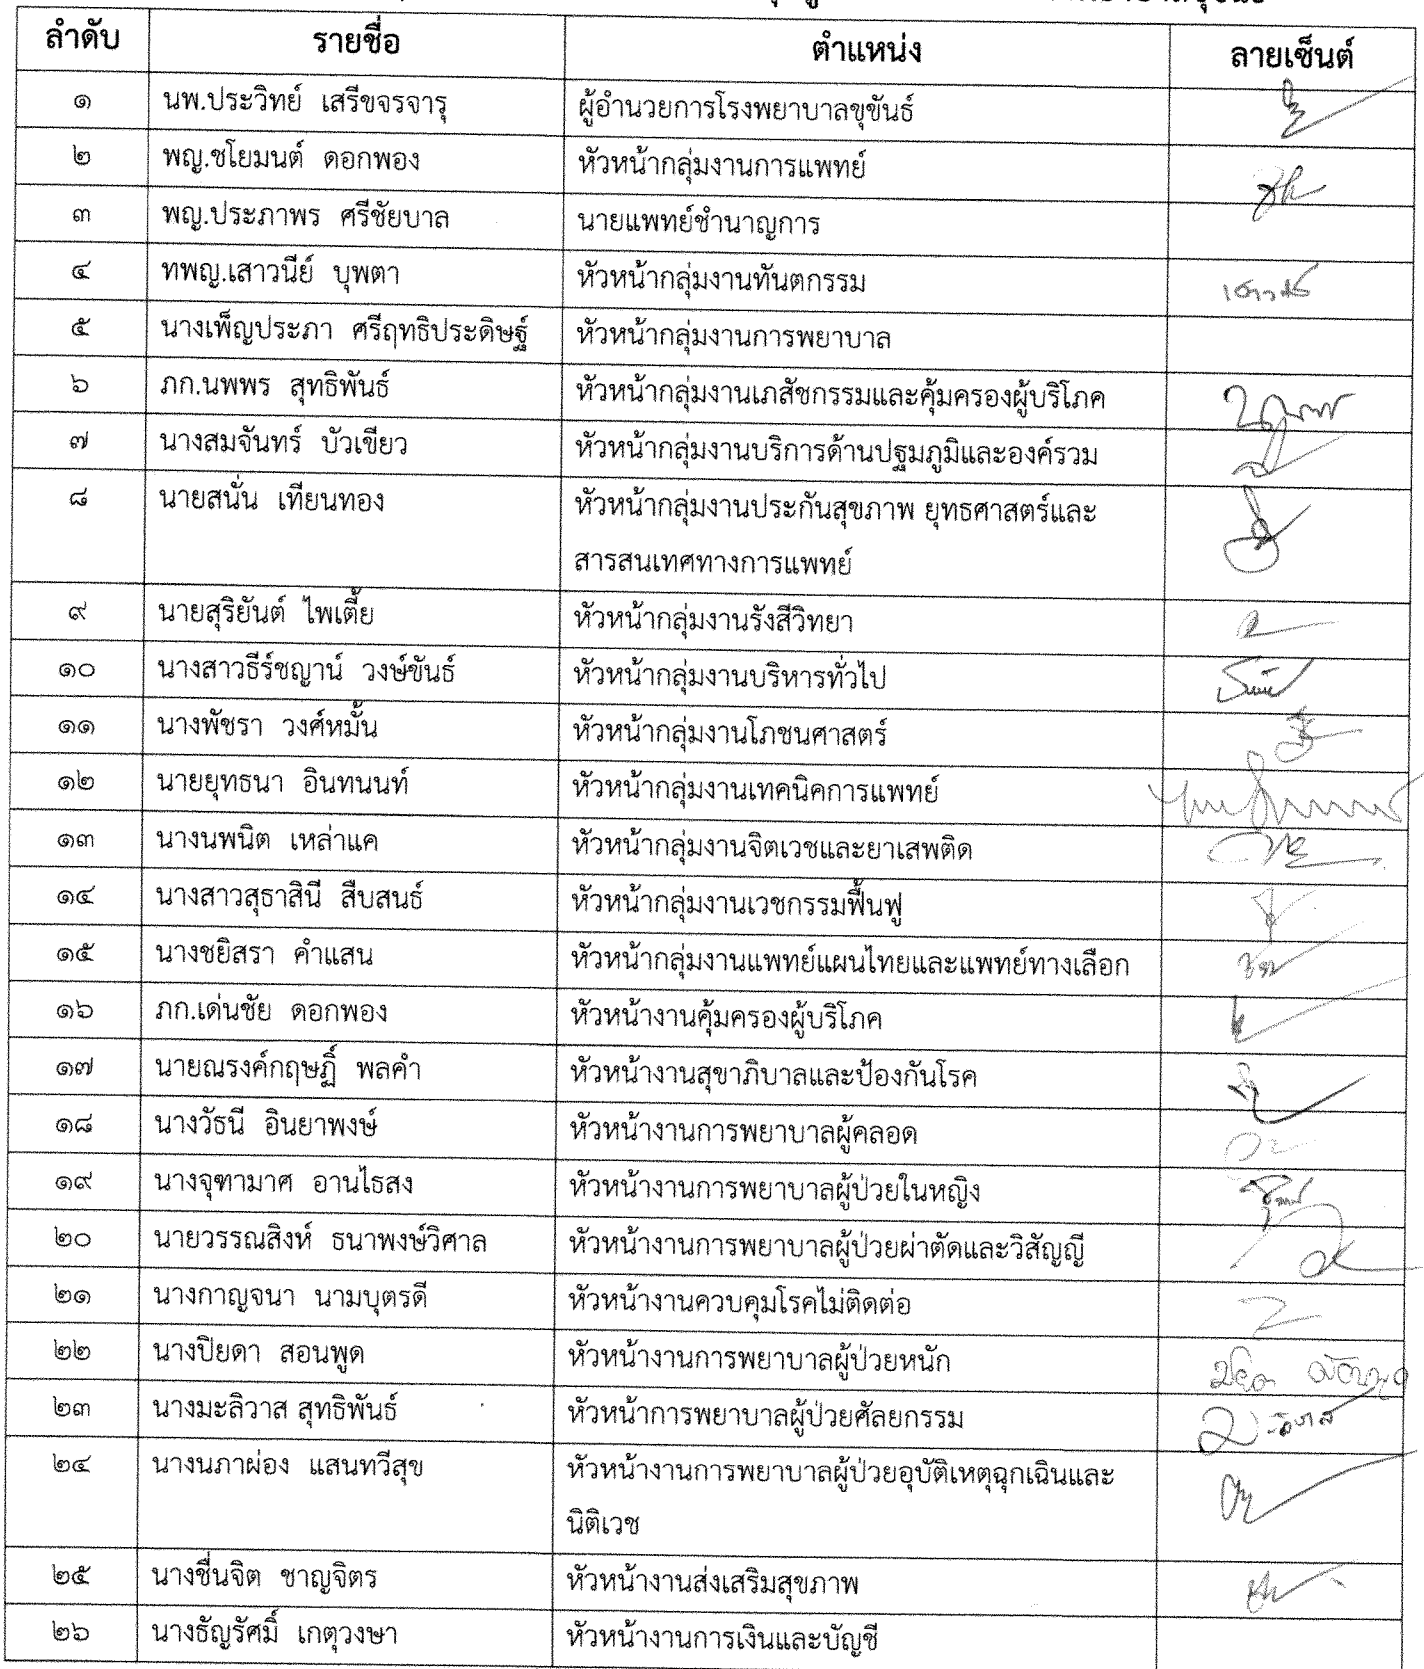 ลำดับ รายชื่อ ตำแหน่ง ลายเซ็นต์
๑ นพ.ประวิทย์ เสรีขจรจารุ ผู้อำนวยการโรงพยาบาลขุขันธ์
๒ พญ.ชโยมนต์ ดอกพอง หัวหน้ากลุ่มงานการแพทย์
๓ พญ.ประภาพร ศรีชัยบาล นายแพทย์ชำนาญการ
๔ ทพญ.เสาวนีย์ บุพตา หัวหน้ากลุ่มงานทันตกรรม
๕ นางเพ็ญประภา ศรีฤทธิประดิษฐ์ หัวหน้ากลุ่มงานการพยาบาล
๖ ภก.นพพร สุทธิพันธ์ หัวหน้ากลุ่มงานเภสัชกรรมและคุ้มครองผู้บริโภค
๗ นางสมจันทร์ บัวเขียว หัวหน้ากลุ่มงานบริการด้านปฐมภูมิและองค์รวม
๘ นายสนั่น เทียนทอง หัวหน้ากลุ่มงานประกันสุขภาพ ยุทธศาสตร์และ
สารสนเทศทางการแพทย์
๙ นายสุริยันต์ ไพเตี้ย หัวหน้ากลุ่มงานรังสีวิทยา
๑๐ นางสาวธีร์ชญาน์ วงษ์ขันธ์ หัวหน้ากลุ่มงานบริหารทั่วไป
๑๑ นางพัชรา วงศ์หมั้น หัวหน้ากลุ่มงานโภชนศาสตร์
๑๒ นายยุทธนา อินทนนท์ หัวหน้ากลุ่มงานเทคนิคการแพทย์
๑๓ นางนพนิต เหล่าแค หัวหน้ากลุ่มงานจิตเวชและยาเสพติด
๑๔ นางสาวสุธาสินี สืบสนธ์ หัวหน้ากลุ่มงานเวชกรรมฟื้นฟู
๑๕ นางชยิสรา คำแสน หัวหน้ากลุ่มงานแพทย์แผนไทยและแพทย์ทางเลือก
๑๖ ภก.เด่นชัย ดอกพอง หัวหน้างานคุ้มครองผู้บริโภค
๑๗ นายณรงค์กฤษฏิ์ พลคำ หัวหน้างานสุขาภิบาลและป้องกันโรค
๑๘ นางวัธนี อินยาพงษ์ หัวหน้างานการพยาบาลผู้คลอด
๑๙ นางจุฑามาศ อานไธสง หัวหน้างานการพยาบาลผู้ป่วยในหญิง
๒๐ นายวรรณสิงห์ ธนาพงษ์วิศาล หัวหน้างานการพยาบาลผู้ป่วยผ่าตัดและวิสัญญี
๒๑ นางกาญจนา นามบุตรดี หัวหน้างานควบคุมโรคไม่ติดต่อ
๒๒ นางปิยดา สอนพูด หัวหน้างานการพยาบาลผู้ป่วยหนัก
๒๓ นางมะลิวาส สุทธิพันธ์ หัวหน้าการพยาบาลผู้ป่วยศัลยกรรม
๒๔ นางนภาผ่อง แสนทวีสุข หัวหน้างานการพยาบาลผู้ป่วยอุบัติเหตุฉุกเฉินและ
นิติเวช
๒๕ นางชื่นจิต ชาญจิตร หัวหน้างานส่งเสริมสุขภาพ
๒๖ นางธัญรัศมิ์ เกตุวงษา หัวหน้างานการเงินและบัญชี